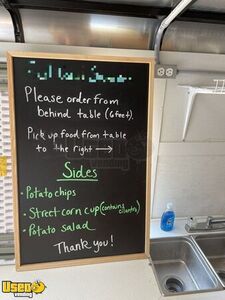 Please order from
behind table (6feet).
Pick up food from table
to the right →
Sides
• Potato chips
• Street corn cup (contains cilantro)
• Potato salad
Thank you!